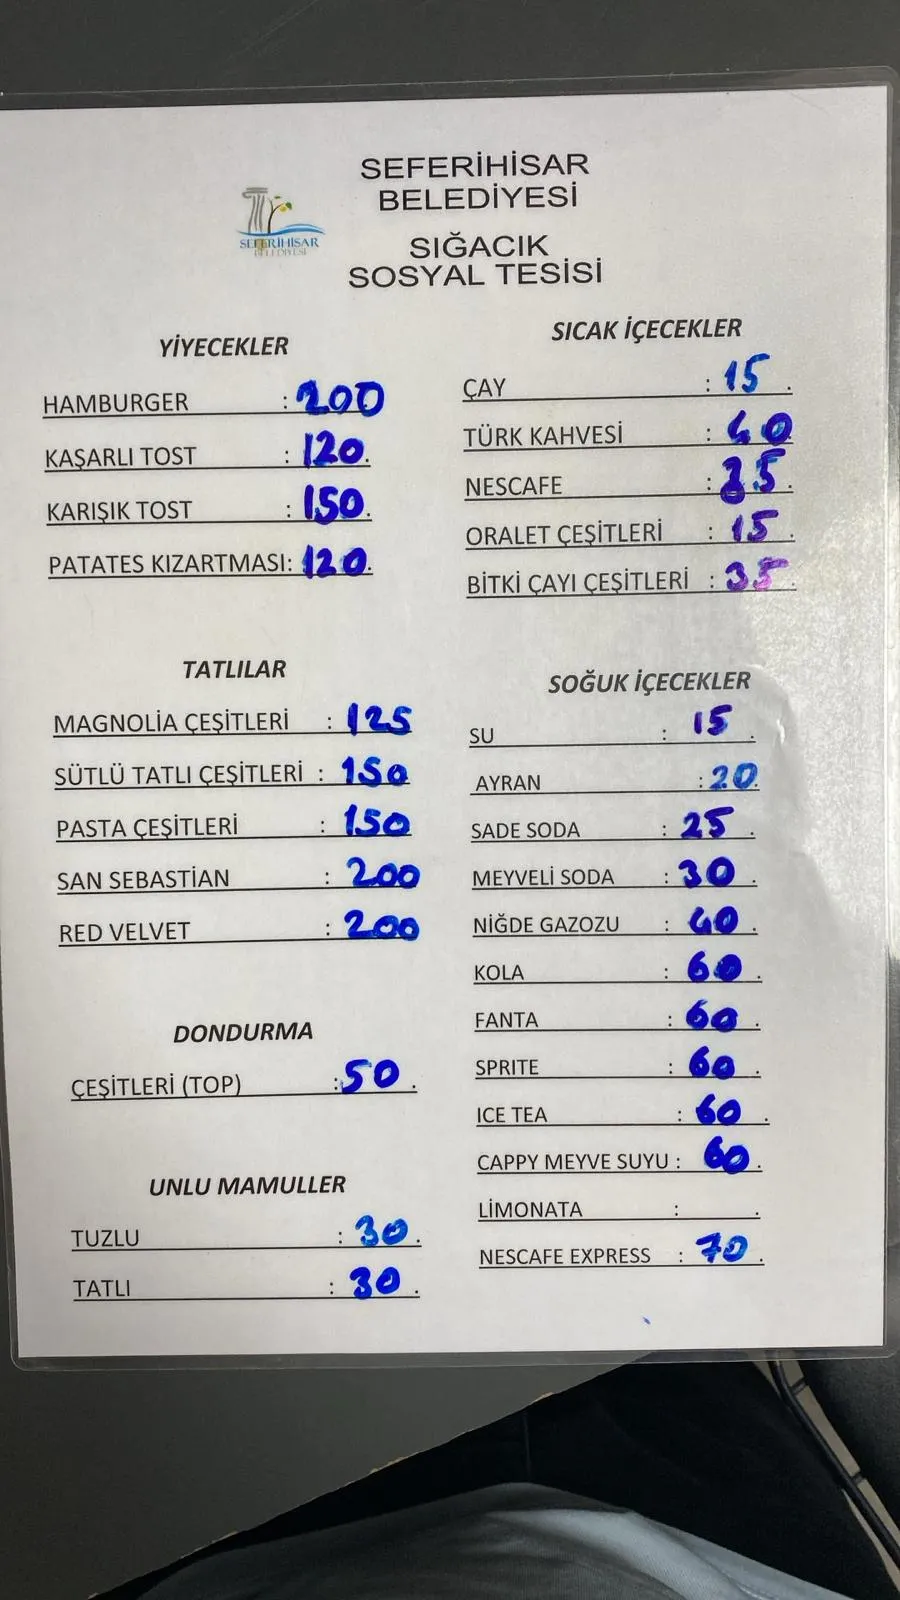 SEFERİHİSAR
BELEDİYESİ
SIĞACIK
SOSYAL TESİSİ
SEFERİHİSAR
BELEDİYESİ
YİYECEKLER
HAMBURGER : 200
KAŞARLI TOST : 120.
KARIŞIK TOST : 150.
PATATES KIZARTMASI: 120.
TATLILAR
MAGNOLİA ÇEŞİTLERİ : 125
SÜTLÜ TATLI ÇEŞİTLERİ : 150
PASTA ÇEŞİTLERİ : 150
SAN SEBASTİAN : 200
RED VELVET : 200
DONDURMA
ÇEŞİTLERİ (TOP) :50 .
UNLU MAMULLER
TUZLU : 30 .
TATLI : 30 .
SICAK İÇECEKLER
ÇAY : 15 .
TÜRK KAHVESİ : 40
NESCAFE : .
ORALET ÇEŞİTLERİ : 15 .
BİTKİ ÇAYI ÇEŞİTLERİ : 35 .
SOĞUK İÇECEKLER
SU : 15 .
AYRAN : 20.
SADE SODA : 25 .
MEYVELİ SODA : 30 .
NİĞDE GAZOZU : 40 .
KOLA : 60 .
FANTA : 60 .
SPRITE : 60 .
ICE TEA : 60 .
CAPPY MEYVE SUYU : 60 .
LİMONATA : .
NESCAFE EXPRESS : 70 .